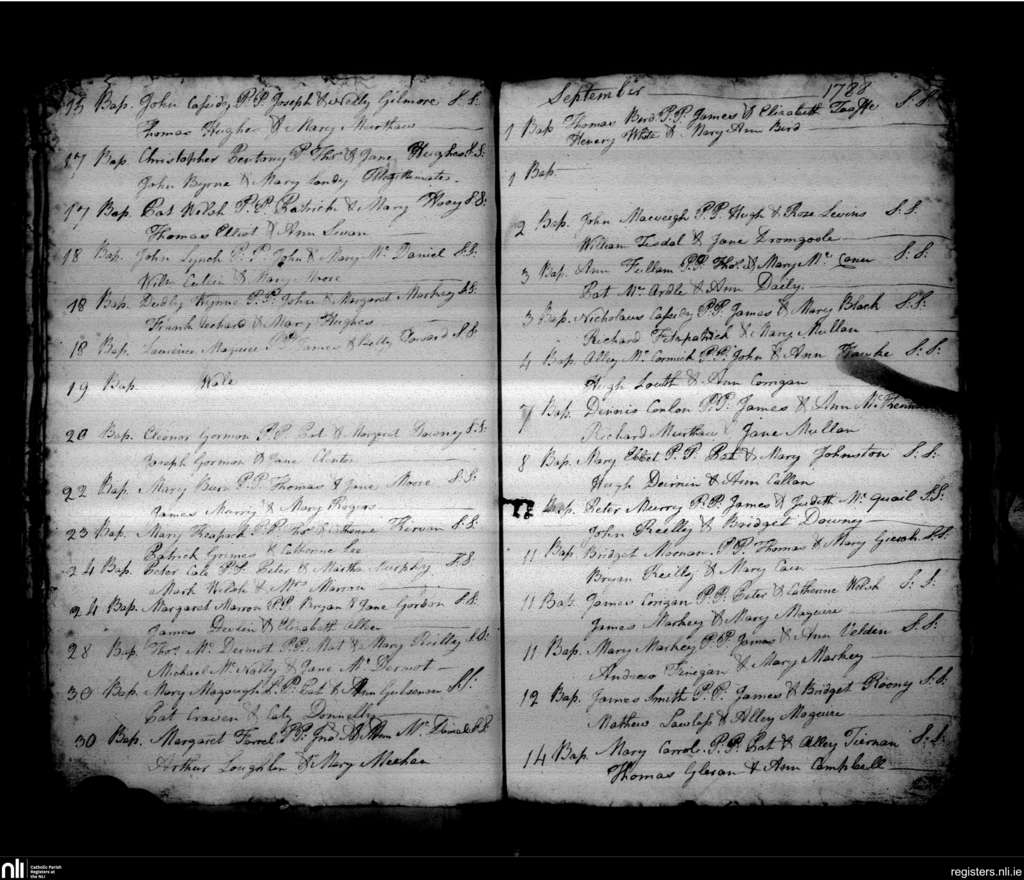 15 Bap. John Cassidy P.P. Joseph & Nelly Gilmore S.S:
Thomas Hughes & Mary Murthaw
17 Bap. Christopher P. Thos & Jane Hughes S.S:
John Byrne & Mary Landy
17 Bap. Pat Welsh P.P. Patrick & Mary Hoey S.S:
Thomas Elliot & Ann Swan
18 Bap. John Lynch P.P. John & Mary Mc Daniel S.S:
Willm & Mary Moore
18 Bap. Dudly Wynne P.P. John & Margaret Markey S.S:
Frank & Mary Hughes
18 Bap. Laurence Maguire P.P. James & Nelly S.S
19 Bap. Wale
20 Bap. Eleonor Gormon P.P. Pat & Margaret Downey S.S:
Joseph Gormon & Jane Clinton
22 Bap. Mary P.P. Thomas & Jane Moore S.S:
James Murry & Mary Rogers
23 Bap. Mary Heapard P.P. Thos & S.S:
Patrick Grimes & Catherine Lee
24 Bap. Peter Cale P.P. Peter & Martha Murphy S.S.
Mark Welsh & Mrs Marron
24 Bap. Margaret Marron P.P. Bryan & Jane Gordon S.S.
James Devin & Elizabeth
28 Bap. Thos Mc Dermot P.P. Mat & Mary Reilly S.S:
Michael Mc Nally & Jane Mc Dermot
30 Bap. Mary Magough P.P. Pat & Ann Gibsonn S.S:
Pat Craven & Caty Donnelly
30 Bap. Margaret Farrel P.P. Jno & Ann Mc Daniel S.S
Arthur Loughlin & Mary Meehan
September 1788
1 Bap Thomas Bird P.P. James & Elizabeth Taaffe S.S.
Henery White & Mary Ann Bird
1 Bap
2 Bap. John Macveegh P.P. Hugh & Rose Levins S.S.
William Tisdal & Jane Dromgoole
3 Bap. Ann Fullam P.P. Thos. & Mary Mc S:S:
Pat Mc Ardle & Ann Daily
3 Bap. Nicholaus Cassidy P.P. James & Mary Black S.S:
Richard Fitzpatrick & Mary Mullan
4 Bap. Alley Mc Cormick P.P. John & Ann Hawke S:S:
Hugh Louth & Ann Corrigan
7 Bap. Dennis Conlon P.P. James & Ann Mc
Richard Murthaw & Jane Mullan
8 Bap. Mary P.P. Pat & Mary Johnston S.S:
Hugh & Ann Callan
Bap. Peter Murry P.P. James & Judeth Mc Quail S.S:
John Reilley & Bridget Downey
11 Bap. Bridget Noonan P.P. Thomas & Mary S.S:
Bryan Reilly & Mary Cain
11 Bap. James Corigan P.P. Peter & Catherine Welsh S.S:
James Markey & Mary Maguire
11 Bap. Mary Markey P.P. James & Ann S.S:
Andrew Finegan & Mary Markey
12 Bap. James Smith P.P. James & Bridget Rooney S.S:
Mathew Lawless & Alley Maguire
14 Bap Mary Carrol P.P. Pat & Alley Tiernan S.S:
Thomas & Ann Campbell
nli Catholic Parish
Registers at
the NLI
registers.nli.ie